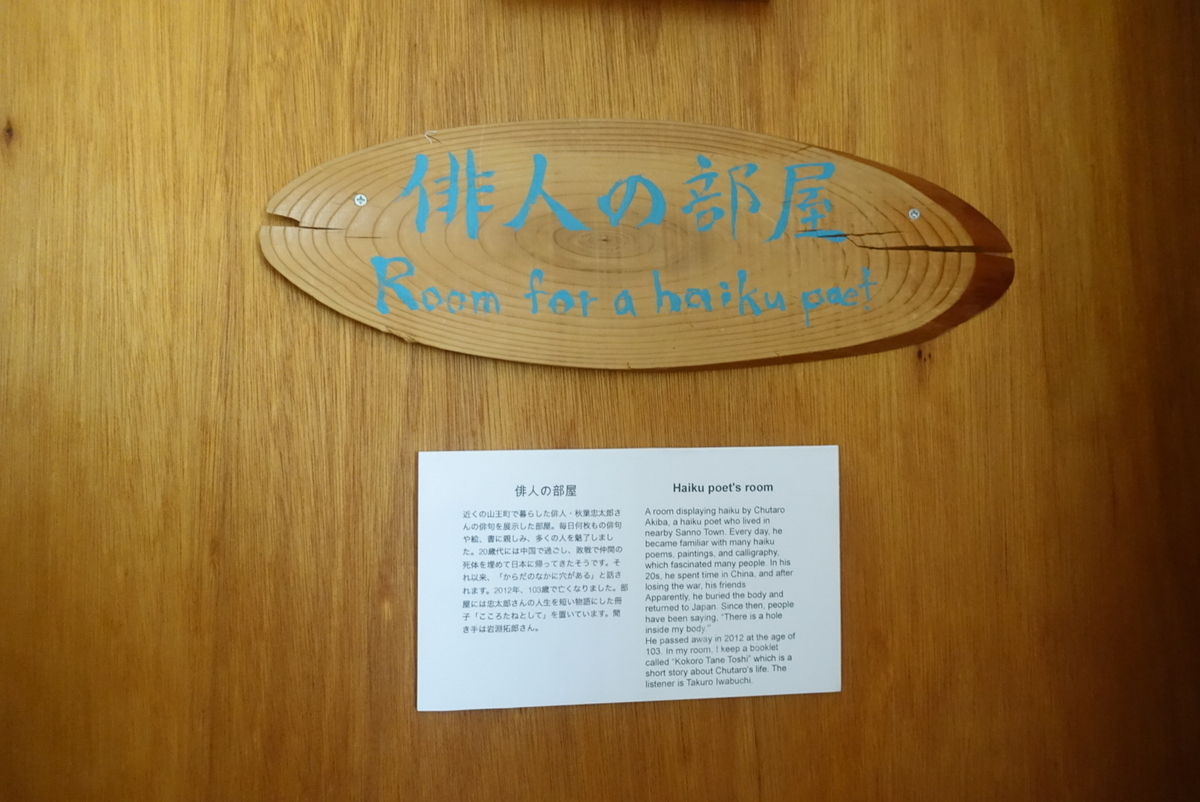 俳人の部屋
Room for a haiku poet
俳人の部屋
近くの山王町で暮らした俳人・秋葉忠太郎さ
んの俳句を展示した部屋。毎日何枚もの俳句
や絵、書に親しみ、多くの人を魅了しまし
た。20歳代には中国で過ごし、敗戦で仲間の
死体を埋めて日本に帰ってきたそうです。そ
れ以来、「からだのなかに穴がある」と話さ
れます。2012年、103歳で亡くなりました。部
屋には忠太郎さんの人生を短い物語にした冊
子「こころたねとして」を置いています。聞
き手は岩淵拓郎さん。
Haiku poet's room
A room displaying haiku by Chutaro
Akiba, a haiku poet who lived in
nearby Sanno Town. Every day, he
became familiar with many haiku
poems, paintings, and calligraphy,
which fascinated many people. In his
20s, he spent time in China, and after
losing the war, his friends
Apparently, he buried the body and
returned to Japan. Since then, people
have been saying, "There is a hole
inside my body."
He passed away in 2012 at the age of
103. In my room, I keep a booklet
called "Kokoro Tane Toshi" which is a
short story about Chutaro's life. The
listener is Takuro Iwabuchi.